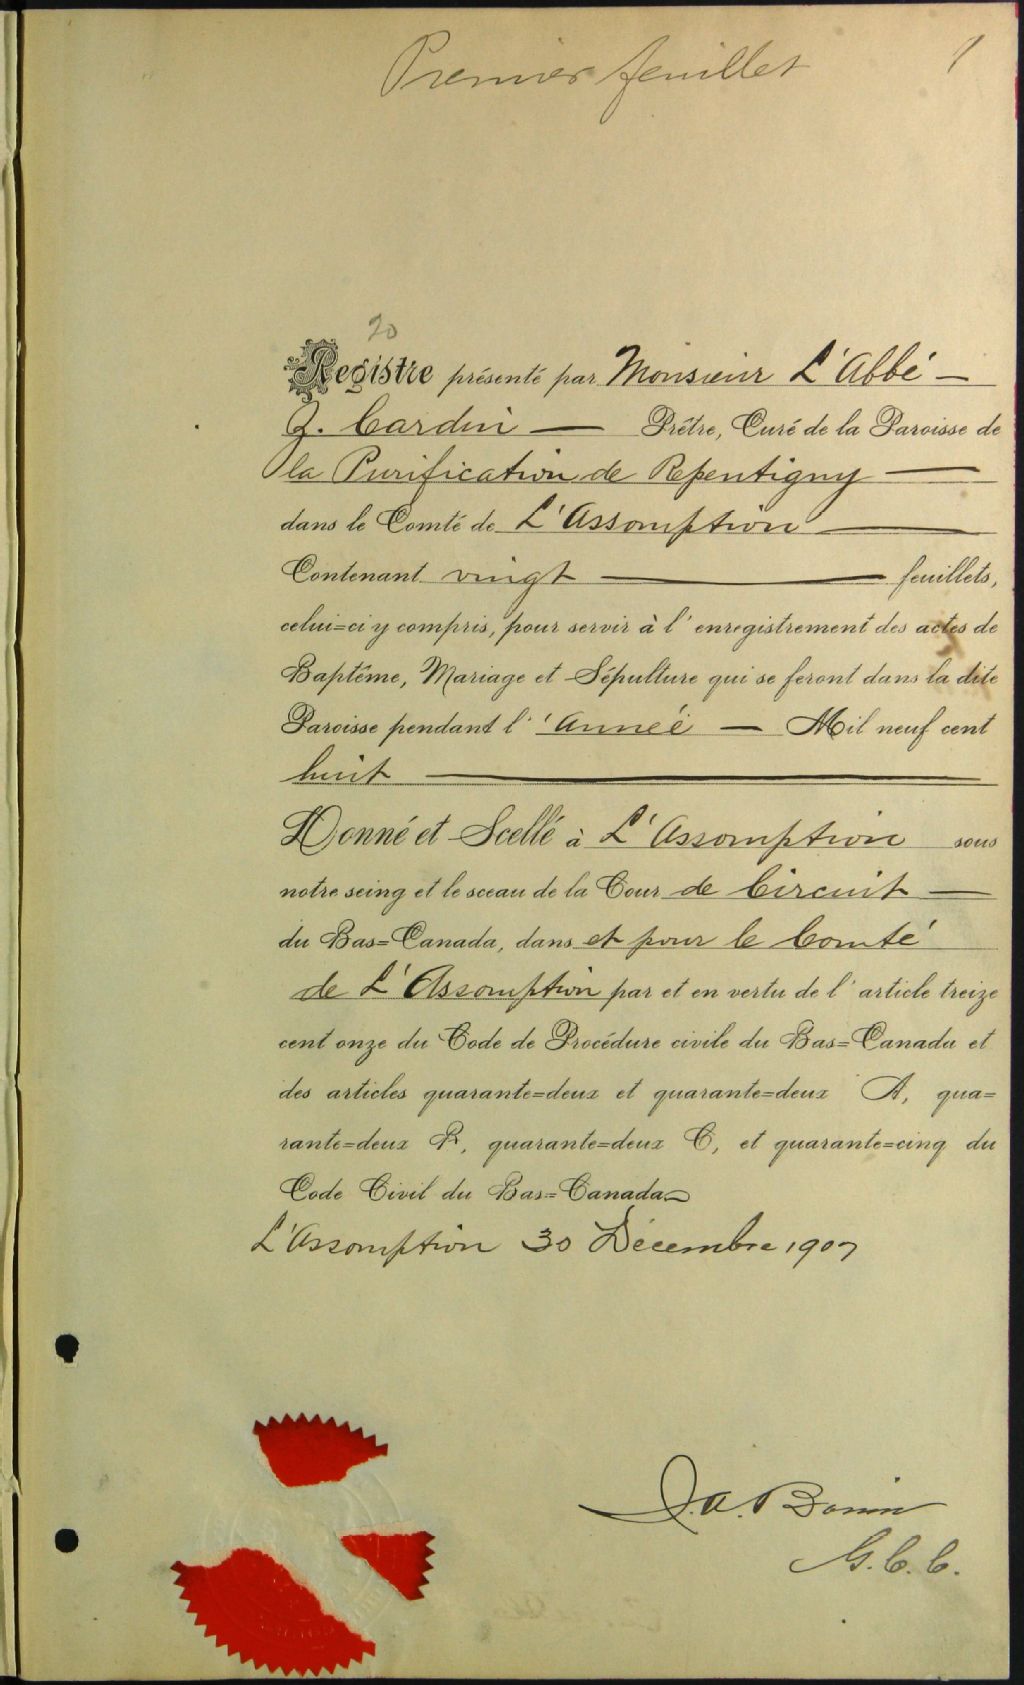 Premier feuillet 1
20
Registre présenté par Monsieur L'Abbé —
Z. Cardin — Prêtre, Curé de la Paroisse de
la Purification de Repentigny —
dans le Comté de L'Assomption —
Contenant vingt — feuillets,
celui=ci y compris, pour servir à l'enregistrement des actes de
Baptême, Mariage et Sépulture qui se feront dans la dite
Paroisse pendant l' 'Année — Mil neuf cent
huit —
Donné et Scellé à L'Assomption sous
notre seing et le sceau de la Cour de Circuit —
du Bas=Canada, dans et pour le Comté
de L'Assomption par et en vertu de l'article treize
cent onze du Code de Procédure civile du Bas=Canada et
des articles quarante=deux et quarante=deux A, qua=
rante=deux B, quarante=deux C, et quarante=cinq du
Code Civil du Bas=Canada
L'Assomption 30 Décembre 1907
J. A. Bonin
G. C. C.